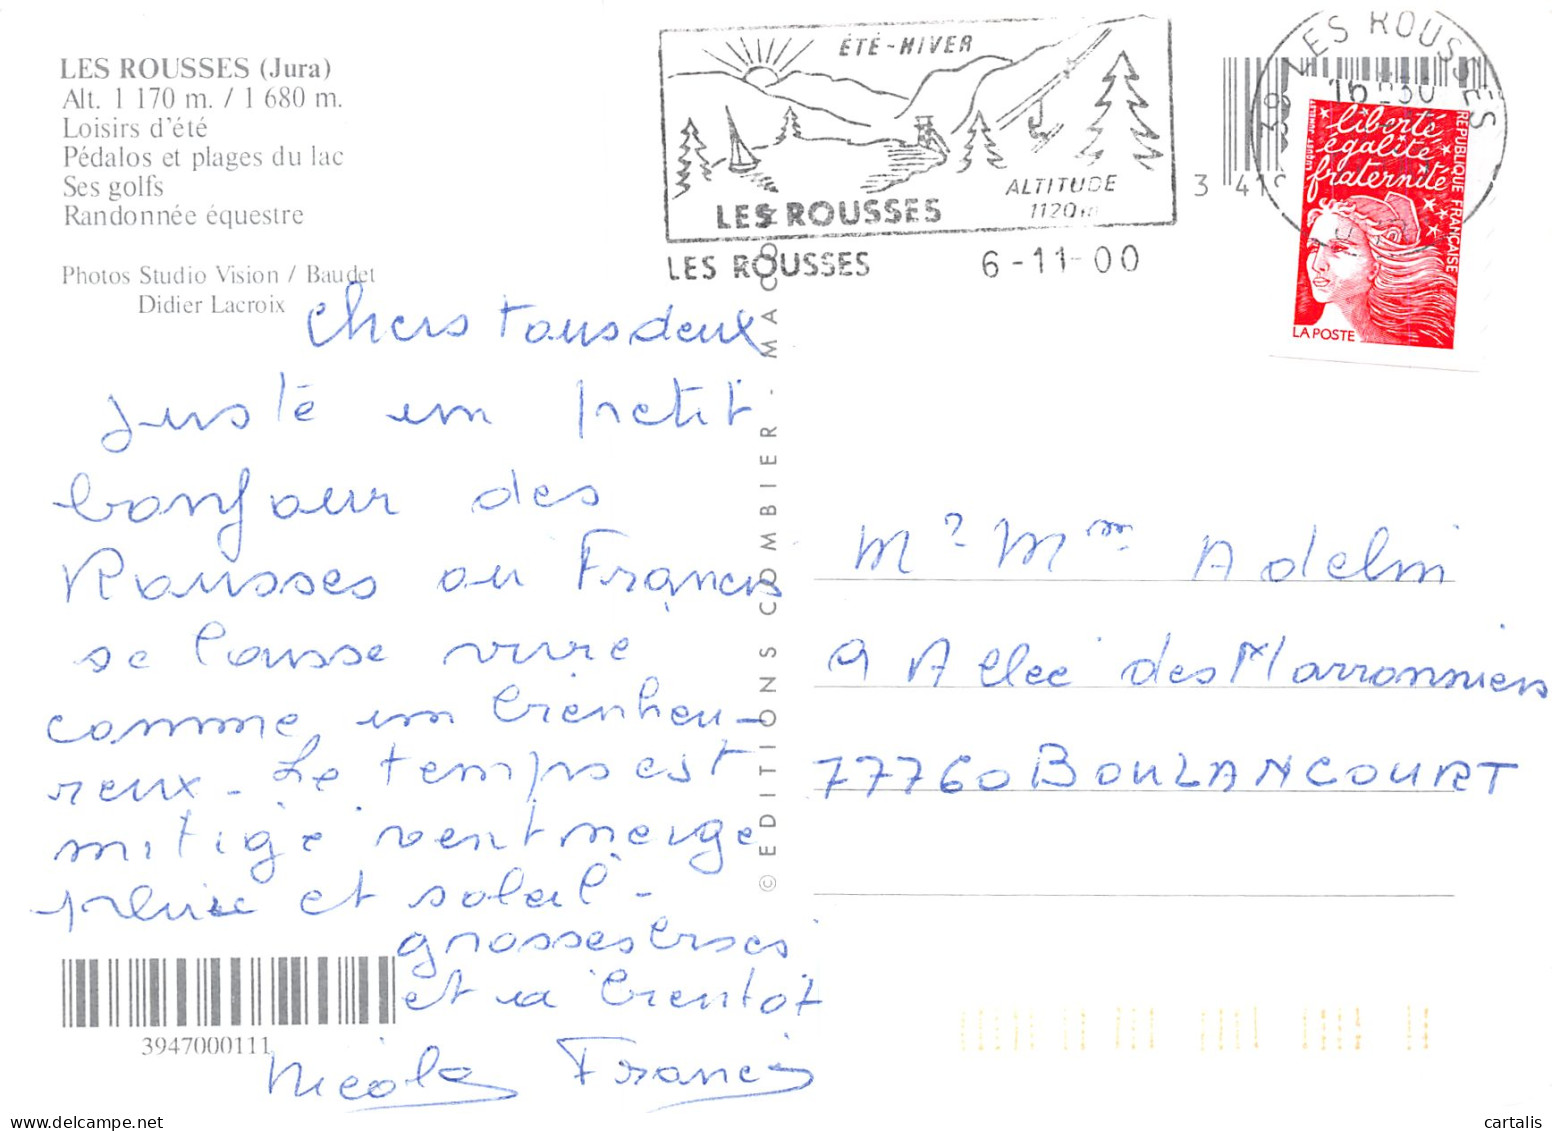 LES ROUSSES (Jura)
Alt. 1 170 m. / 1 680 m.
Loisirs d'été
Pédalos et plages du lac
Ses golfs
Randonnée équestre
Photos Studio Vision / Baudet
Didier Lacroix
ÉTÉ-HIVER
ALTITUDE
1120m
LES ROUSSES
LES ROUSSES 6-11-00
39 LES ROUSSES
16 30
3 419
liberté
égalité
fraternité
RÉPUBLIQUE FRANÇAISE
LUQUET JUMELET
LA POSTE
© EDITIONS COMBIER - MACON
Chers tous deux
juste un petit
bonjour des
Rousses ou Francis
se laisse vivre
comme un bienheu-
reux - Le temps est
mitigé vent neige
pluie et soleil -
grosses bises
et à bientôt
Nicole Francis
Mr Mme Adelin
9 Allée des Marronniers
77760 BOULANCOURT
3947000111
www.delcampe.net
cartalis